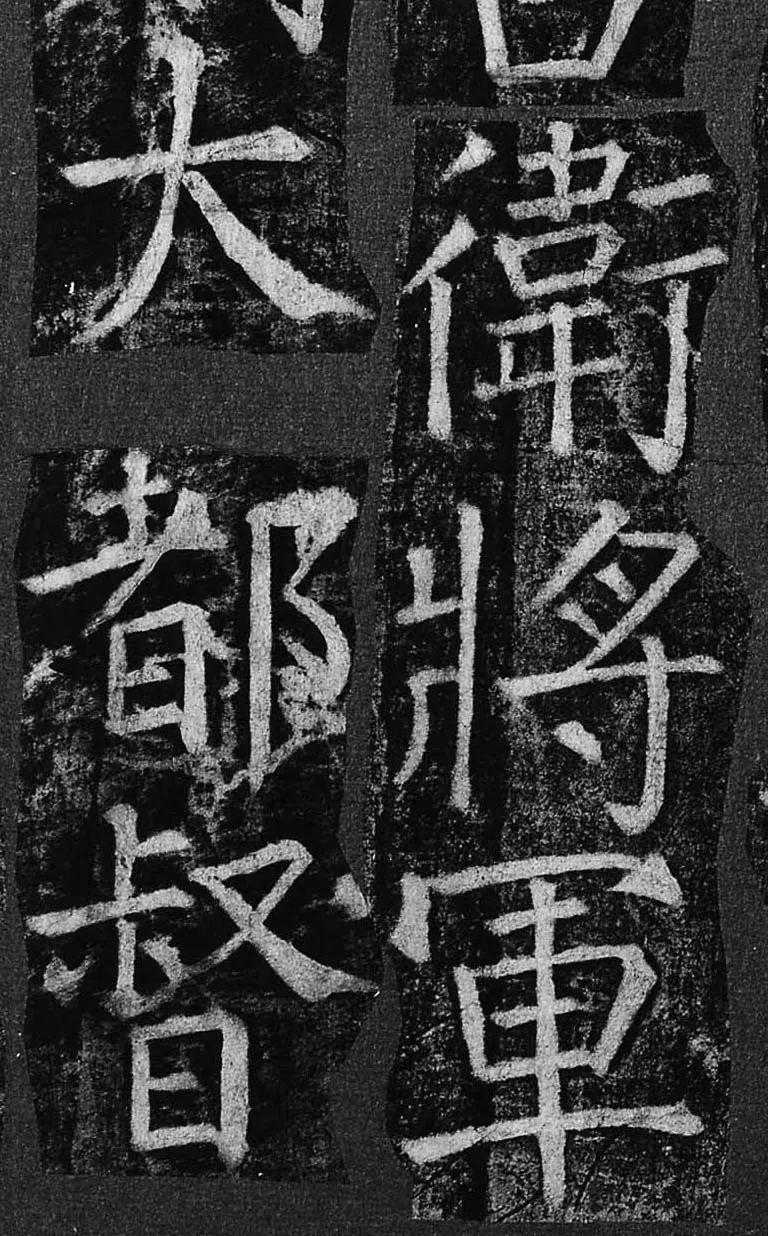 衛將軍
大都督